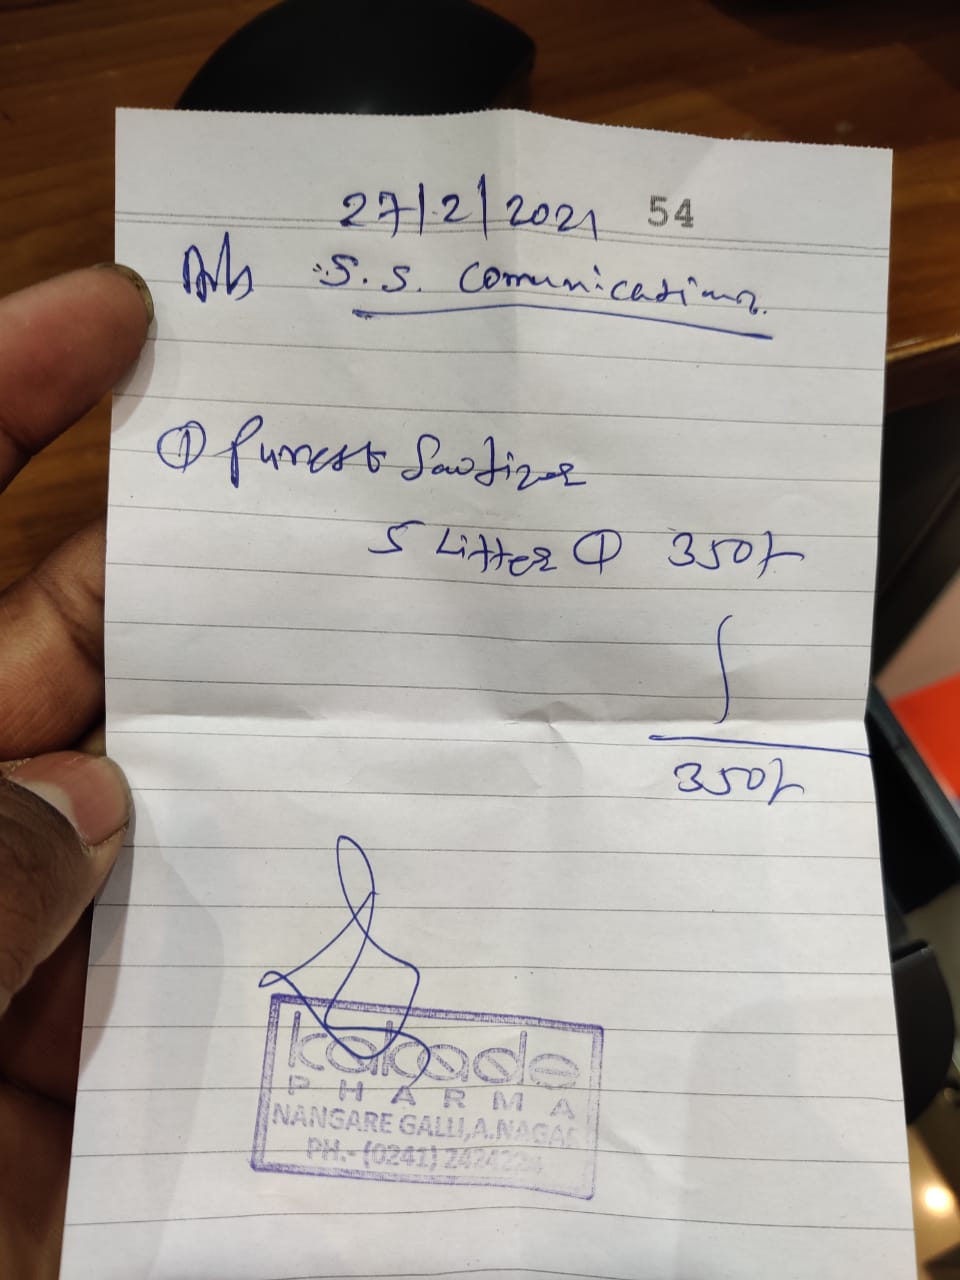 27/2/2021 54
S.S. Comunications.
① Purrest Sanitizer
5 Litter ① 350/-
350/-
kakade
PHARMA
NANGARE GALLI, A.NAGAR
PH.- (0241) 2424224